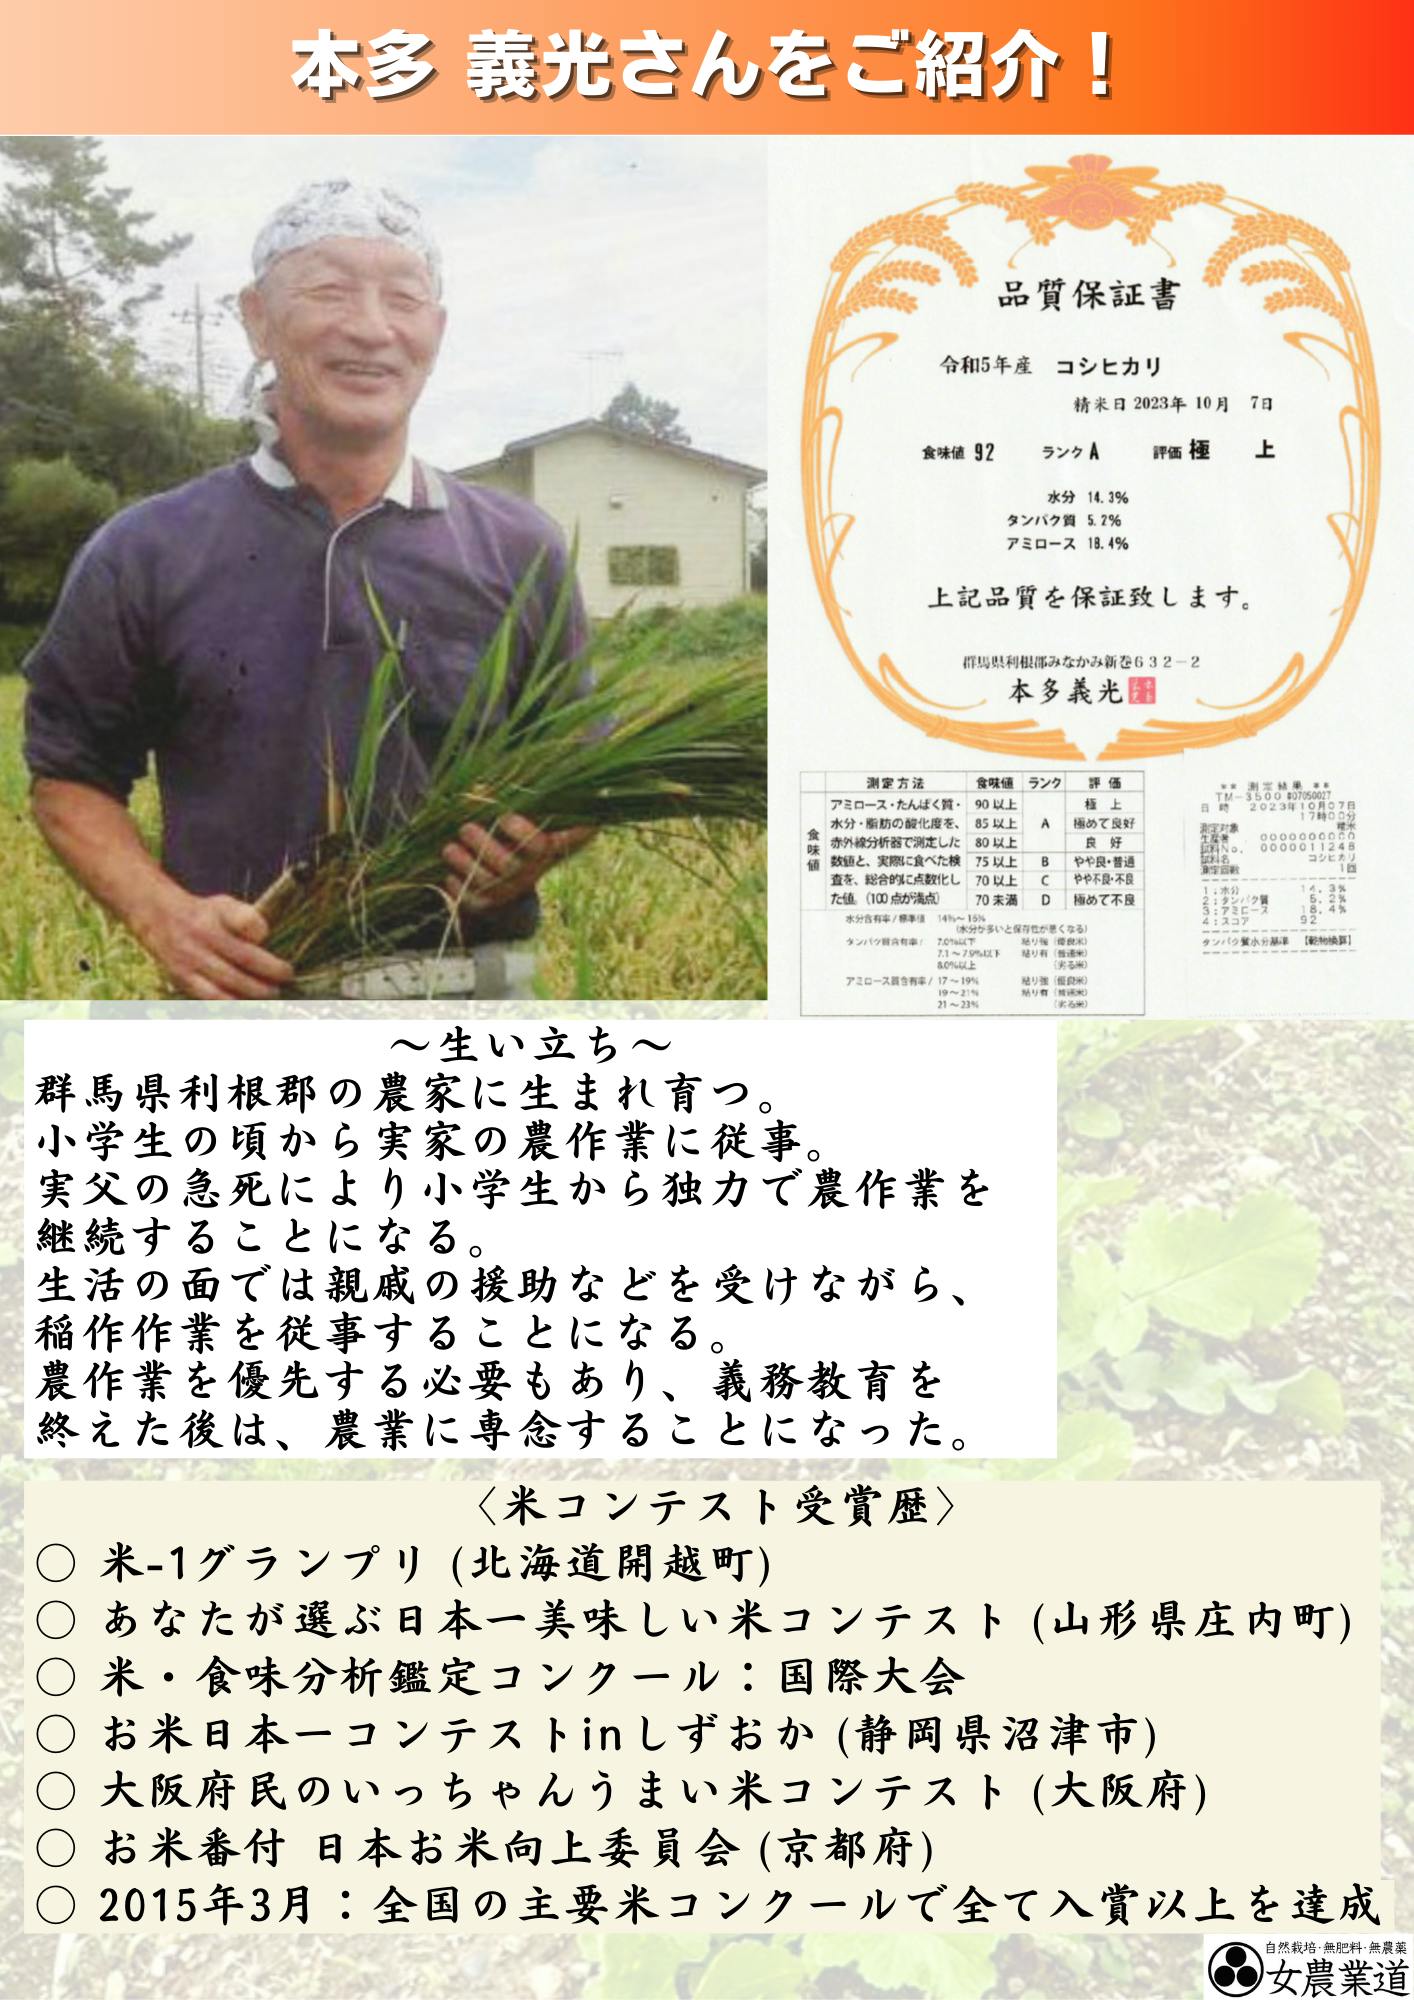 本多 義光さんをご紹介！
品質保証書
令和5年産 コシヒカリ
精米日 2023年 10月 7日
食味値 92 ランク A 評価 極 上
水分 14.3%
タンパク質 5.2%
アミロース 18.4%
上記品質を保証致します。
群馬県利根郡みなかみ新巻632-2
本多義光
測定方法 食味値 ランク 評 価
食味値
アミロース・たんぱく質・ 90 以上 極 上
水分・脂肪の酸化度を、 85 以上 A 極めて良好
赤外線分析器で測定した 80 以上 良 好
数値と、実際に食べた検 75 以上 B やや良・普通
査を、総合的に点数化し 70 以上 C やや不良・不良
た値。(100 点が満点) 70 未満 D 極めて不良
水分含有率/標準値 14%～16%
(水分が多いと保存性が悪くなる)
タンパク質含有率/ 7.0%以下 粘り強 (優良米)
7.1～7.9%以下 粘り有 (普通米)
8.0%以上 (劣る米)
アミロース質含有率/ 17～19% 粘り強 (優良米)
19～21% 粘り有 (普通米)
21～23% (劣る米)
** 測定結果 **
TM-3500 #07050027
日 時 2023年10月07日
17時00分
測定対象 精米
生産者 0000000000
試料No. 0000011248
試料名 コシヒカリ
測定回数 1回
1:水分 14.3%
2:タンパク質 5.2%
3:アミロース 18.4%
4:スコア 92
タンパク質水分基準 【乾物換算】
～生い立ち～
群馬県利根郡の農家に生まれ育つ。
小学生の頃から実家の農作業に従事。
実父の急死により小学生から独力で農作業を
継続することになる。
生活の面では親戚の援助などを受けながら、
稲作作業を従事することになる。
農作業を優先する必要もあり、義務教育を
終えた後は、農業に専念することになった。
〈米コンテスト受賞歴〉
○ 米-1グランプリ (北海道開越町)
○ あなたが選ぶ日本一美味しい米コンテスト (山形県庄内町)
○ 米・食味分析鑑定コンクール：国際大会
○ お米日本一コンテストinしずおか (静岡県沼津市)
○ 大阪府民のいっちゃんうまい米コンテスト (大阪府)
○ お米番付 日本お米向上委員会 (京都府)
○ 2015年3月：全国の主要米コンクールで全て入賞以上を達成
自然栽培・無肥料・無農薬
女農業道